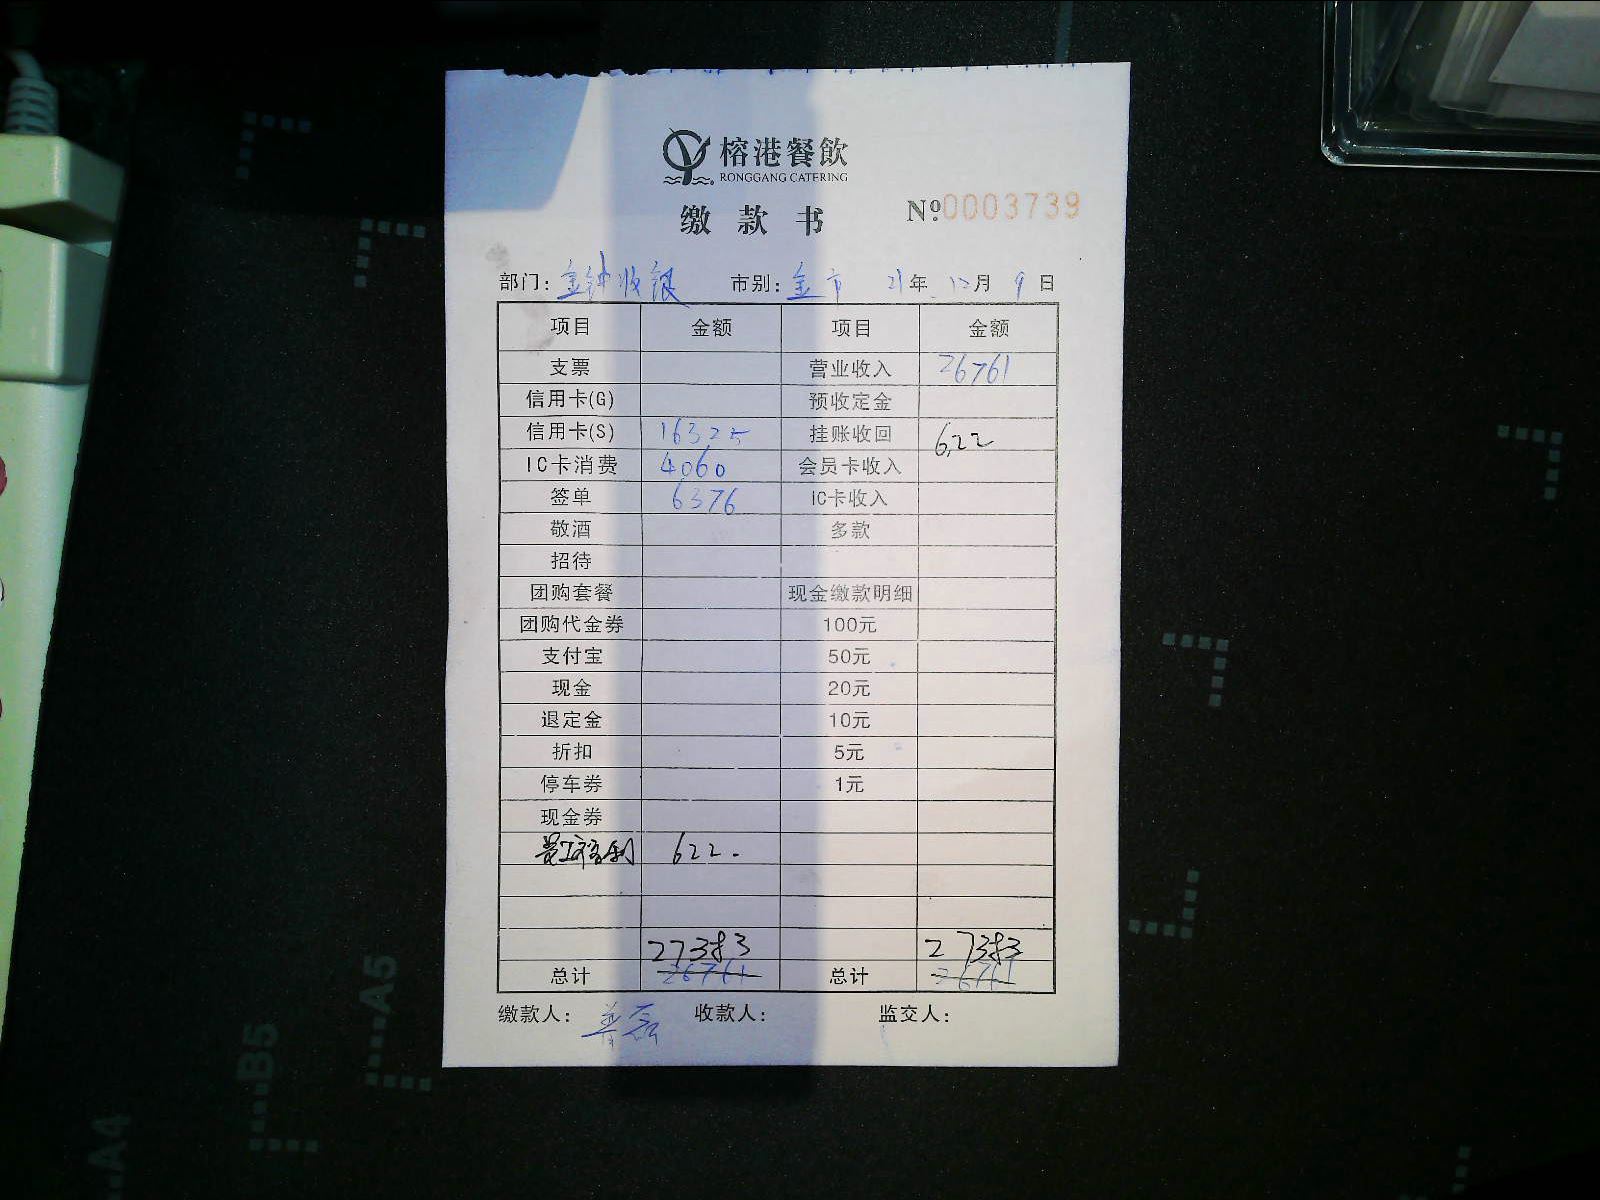 榕港餐飲
RONGGANG CATERING
缴款书
Nº:0003739
部门: 金钟收银 市别: 全市 21年 12月 9日
项目 金额 项目 金额
支票 营业收入 26761
信用卡(G) 预收定金
信用卡(S) 16325 挂账收回 622
IC卡消费 4060 会员卡收入
签单 6376 IC卡收入
敬酒 多款
招待
团购套餐 现金缴款明细
团购代金券 100元
支付宝 50元
现金 20元
退定金 10元
折扣 5元
停车券 1元
现金券
员工福利 622.
27383 27383
总计 26761 总计 26761
缴款人: 收款人: 监交人:
A5
B5
A4